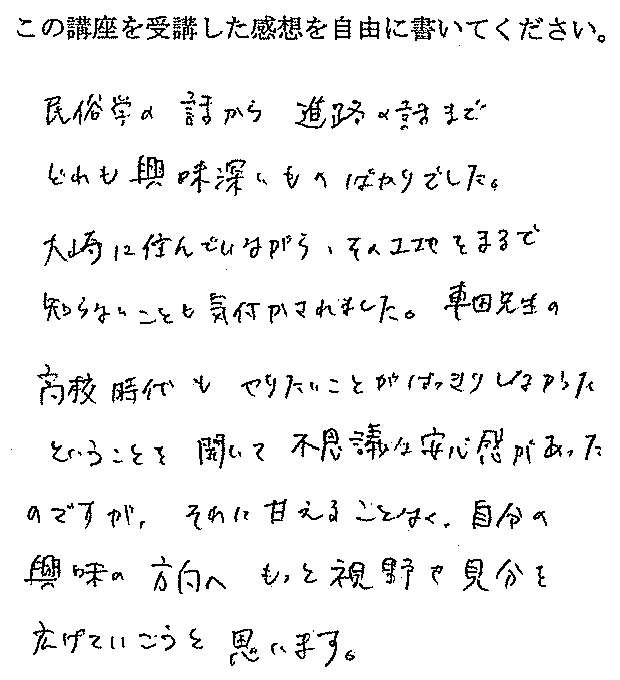 この講座を受講した感想を自由に書いてください。
民俗学の話から 進路の話まで
どれも興味深いものばかりでした。
大崎に住んでいながら、その土地をまるで
知らないことも気付かされました。車田先生の
高校時代も やりたいことがはっきりしなかった
ということを 聞いて 不思議な安心感があった
のですが、それに甘えることなく、自分の
興味の方向へ もっと視野や見分を
広げていこうと 思います。